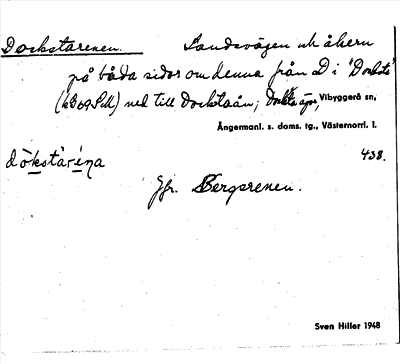 Dockstarenen. Landsvägen och åkern
på båda sidor om denna från D i 'Docksta'
ned till Dockstaån; Vibyggerå sn,
Ångermanl. s. doms. tg., Västernorrl. l.
438.
Jfr. Bergsrenen.
Sven Hiller 1948